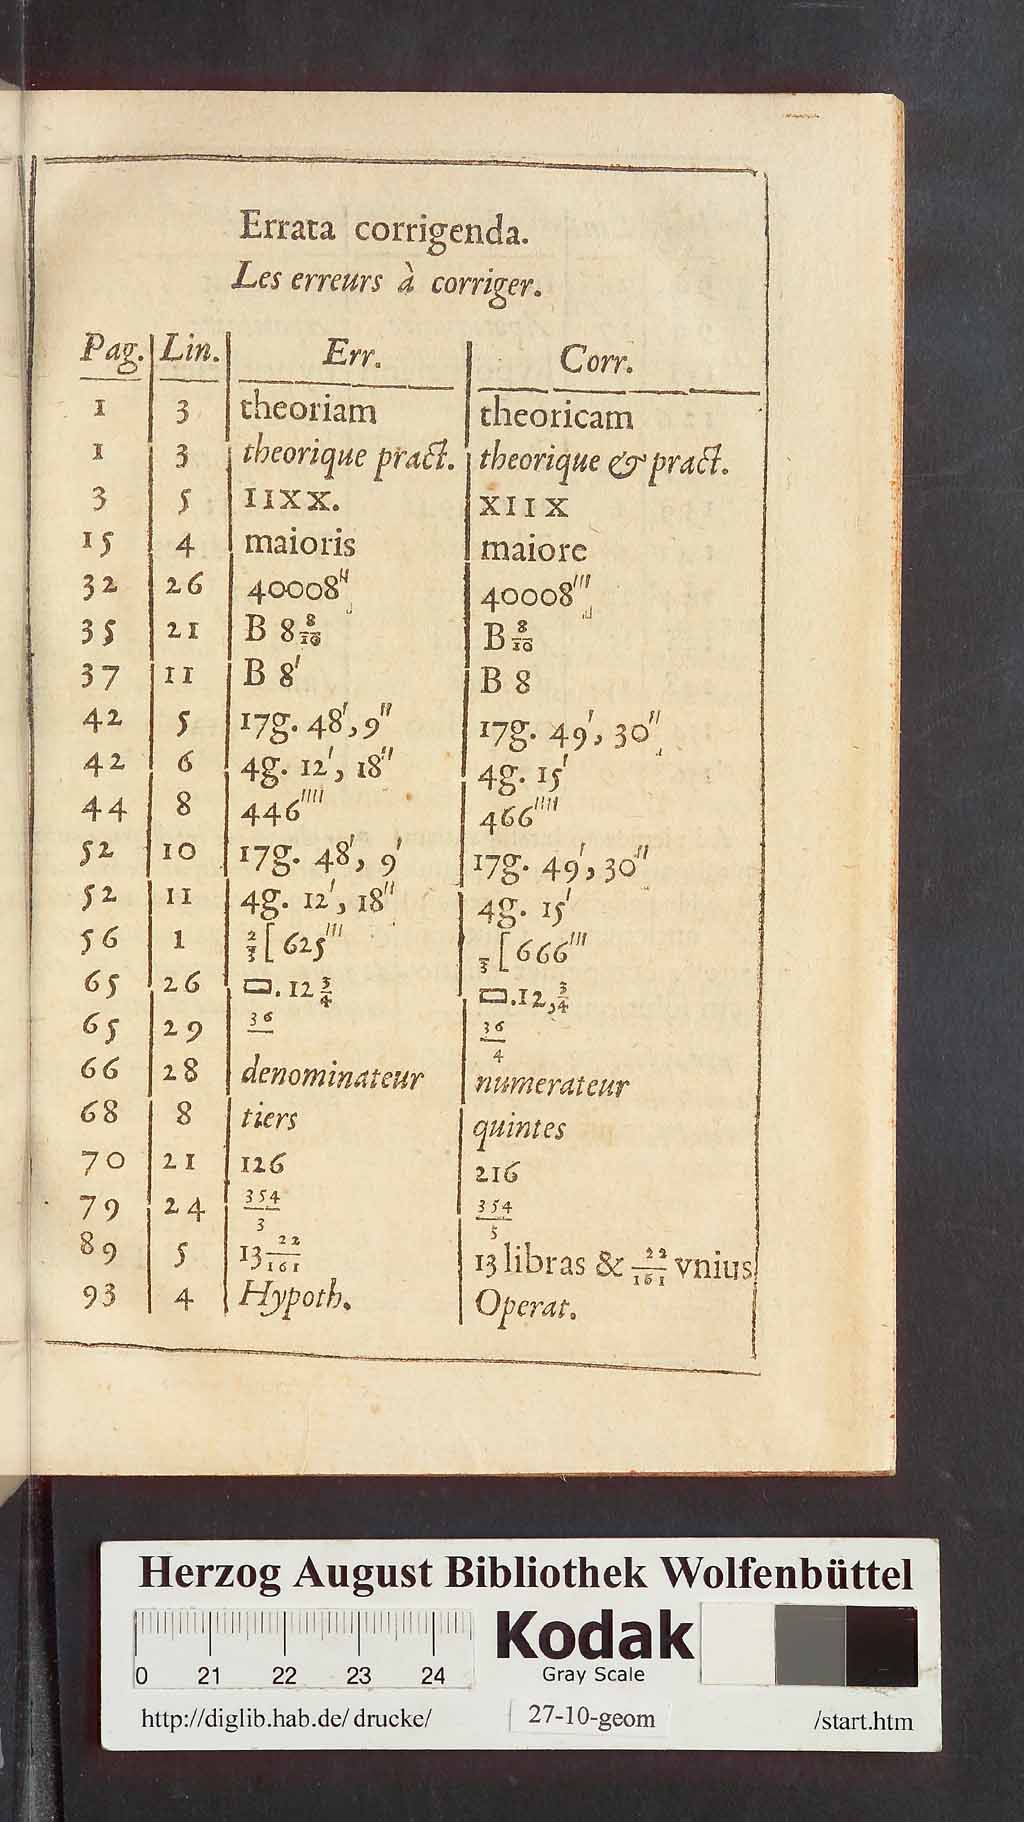 Errata corrigenda.
Les erreurs à corriger.
Pag. Lin. Err. Corr.
1 3 theoriam theoricam
1 3 theorique pract. theorique & pract.
3 5 IIXX. XIIX
15 4 maioris maiore
32 26 40008'' 40008'''
35 21 B 8 8/10 B 8/10
37 11 B 8' B 8
42 5 17g. 48', 9'' 17g. 49', 30''
42 6 4g. 12', 18'' 4g. 15'
44 8 446'''' 466'''''
52 10 17g. 48', 9' 17g. 49', 30''
52 11 4g. 12', 18'' 4g. 15'
56 1 2/3 [ 625''' /3 [ 666'''
65 26 ▭. 12 3/4 ▭. 12, 3/4
65 29 36/ 36/4
66 28 denominateur numerateur
68 8 tiers quintes
70 21 126 216
79 24 354/3 354/5
89 5 13 22/161 13 libras & 22/161 vnius
93 4 Hypoth. Operat.
Herzog August Bibliothek Wolfenbüttel
0 21 22 23 24
Kodak
Gray Scale
http://diglib.hab.de/drucke/ 27-10-geom /start.htm